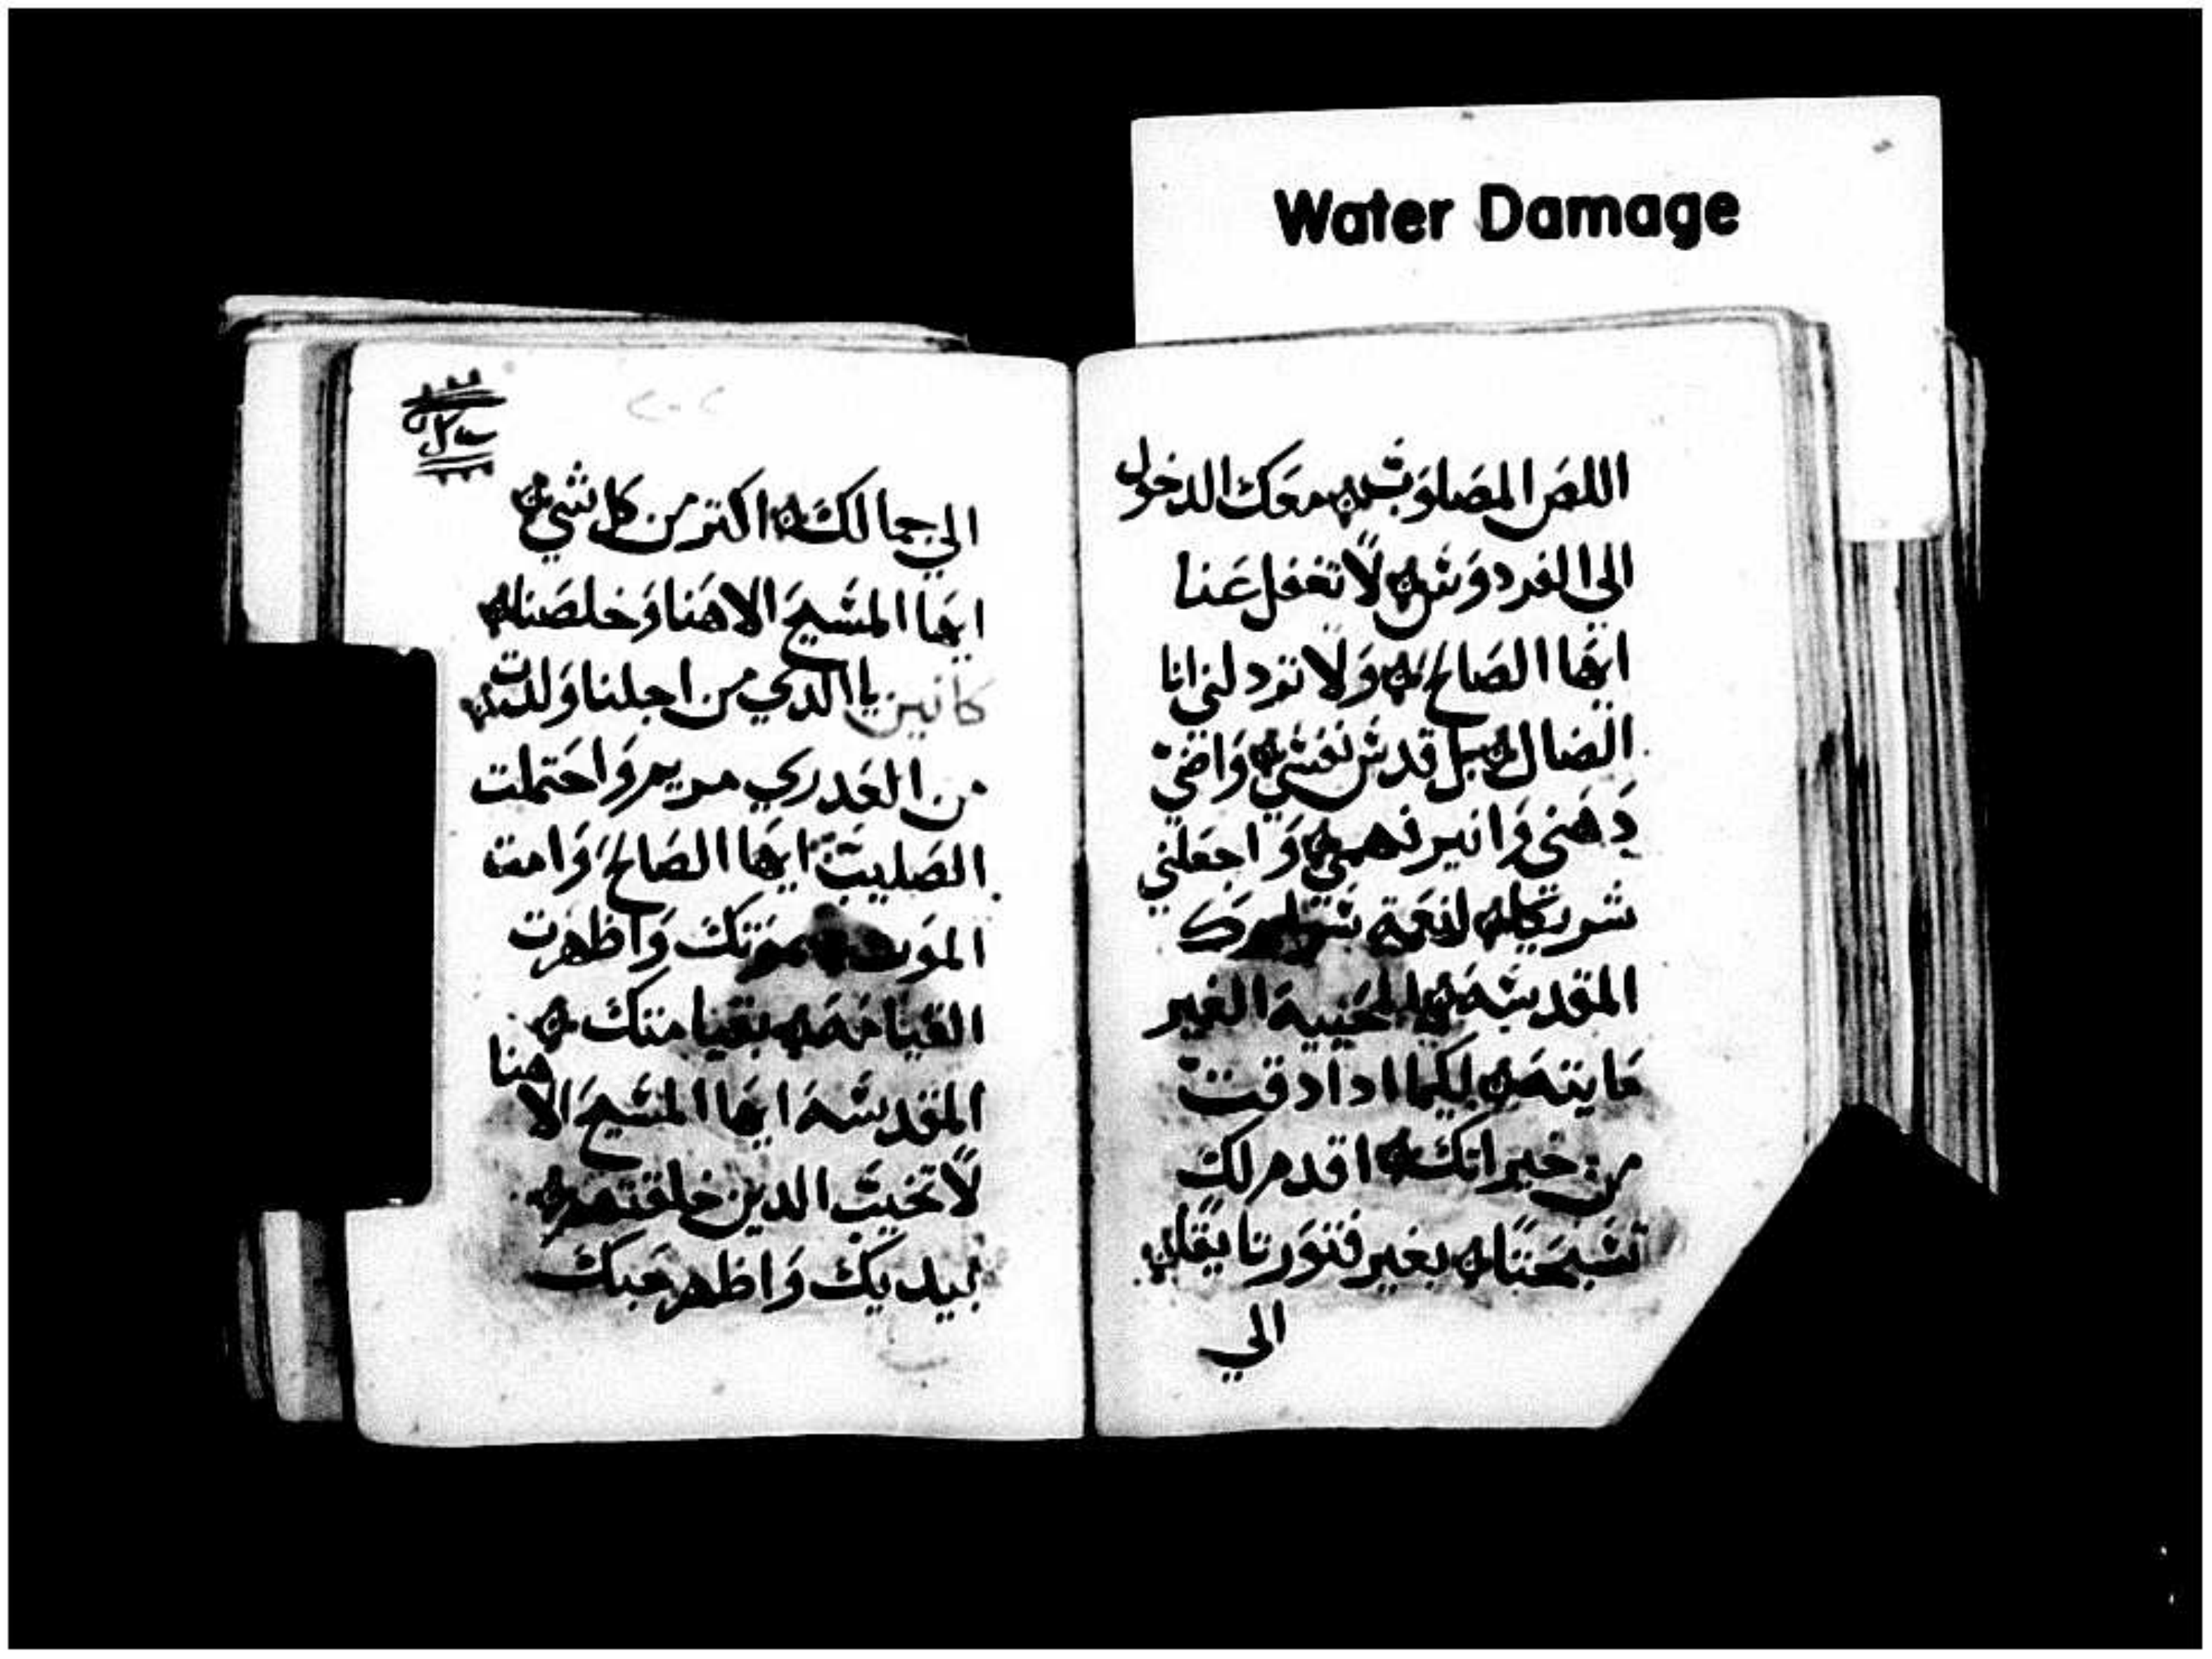 Water Damage
اللص المصلوب معك الدخول
الى الفردوس لا تغفل عنا
ايها الصالح ولا تردلني انا
الضال بل قدس نفسي واضي
دهني وانير فهمي واجعلني
شريكا لنعمة
المقدسه المحييه الغير
مايته لكيما ادا دقت
من خيراتك اقدم لك
تسبحتا بغير فتور تايقا
الي
٢٠٢
الي جمالك اكتر من كل شي
ايها المسيح الاهنا وخلصنا
كانين ياالدي من اجلنا ولدت
من العدري مريم واحتملت
الصليب ايها الصالح وامت
الموت بموتك واظهرت
القيامه بقيامتك
المقدسه ايها المسيح الاهنا
لا تخيب الدين خلقتهم
بيديك واظهر حبك